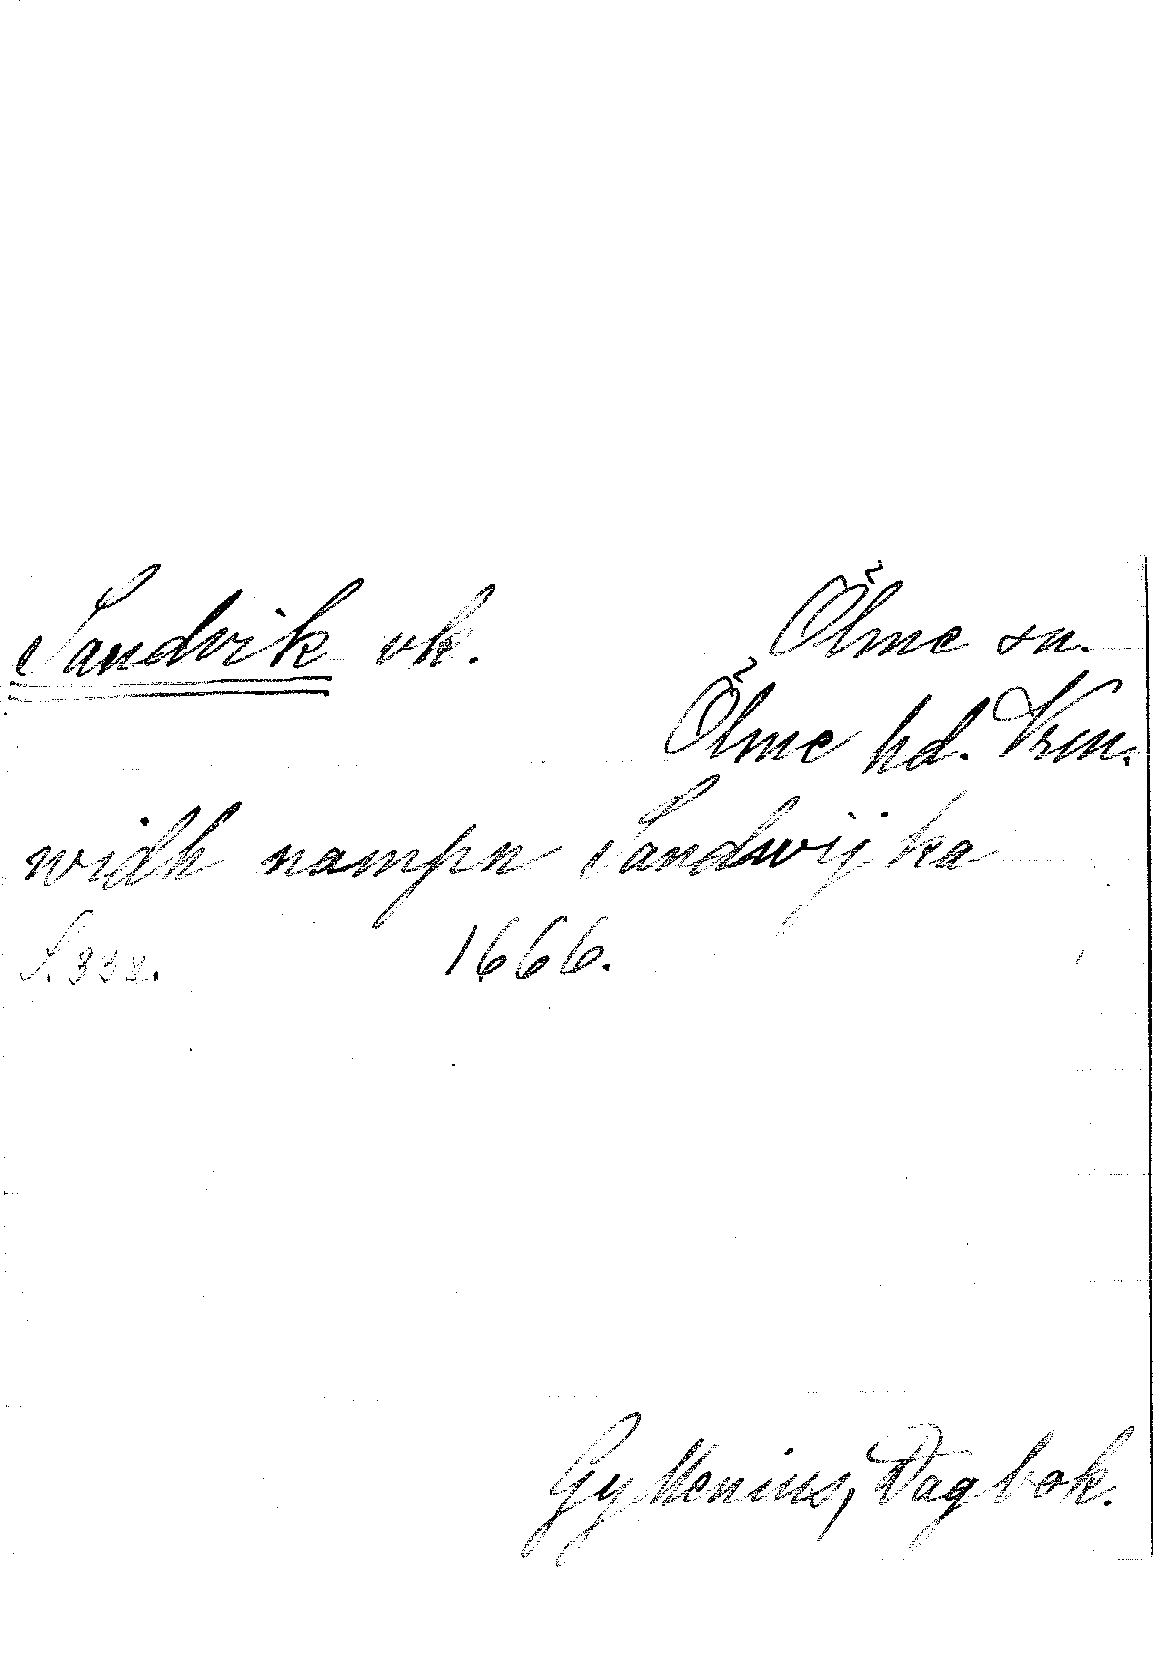 Sandvik vk. Ölme sn.
Ölme hd. Vrm.
widh nampn Sandwijka
S. 338. 1666.
Gyllenius, Dagbok.